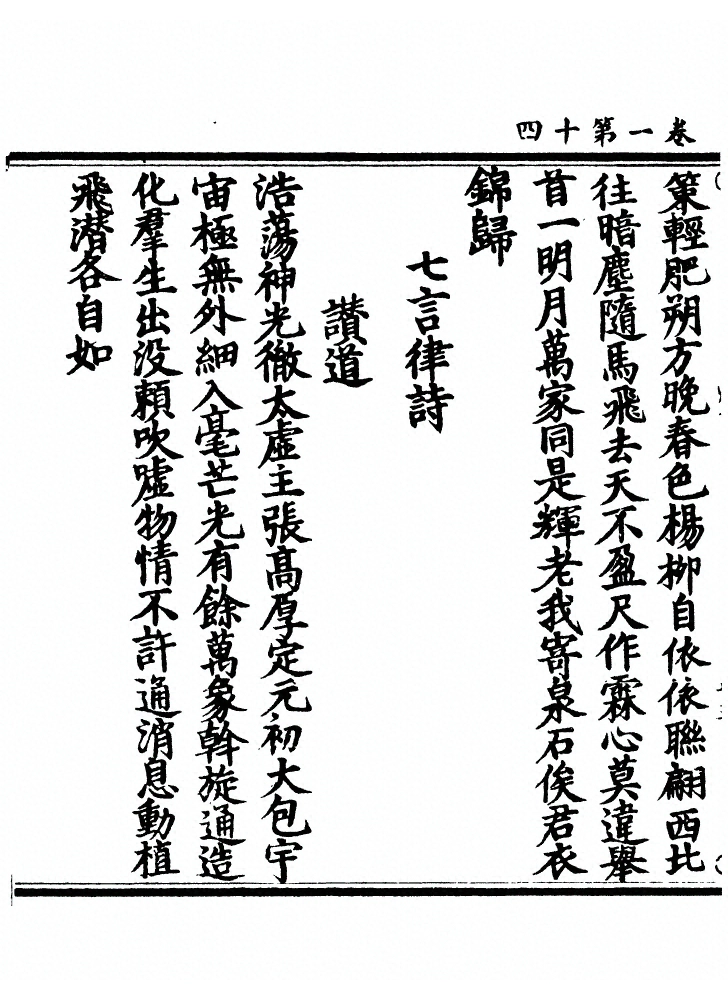 卷一第十四
策輕肥朔方晚春色楊栁自依依聯翩西北
往暗塵隨馬飛去天不盈尺作霖心莫違舉
首一明月萬家同是輝老我寄泉石俟君衣
錦歸
七言律詩
讃道
浩蕩神光徹太虛主張高厚定元初大包宇
宙極無外細入毫芒光有餘萬象斡旋通造
化羣生出没頼吹噓物情不許通消息動植
飛潜各自如